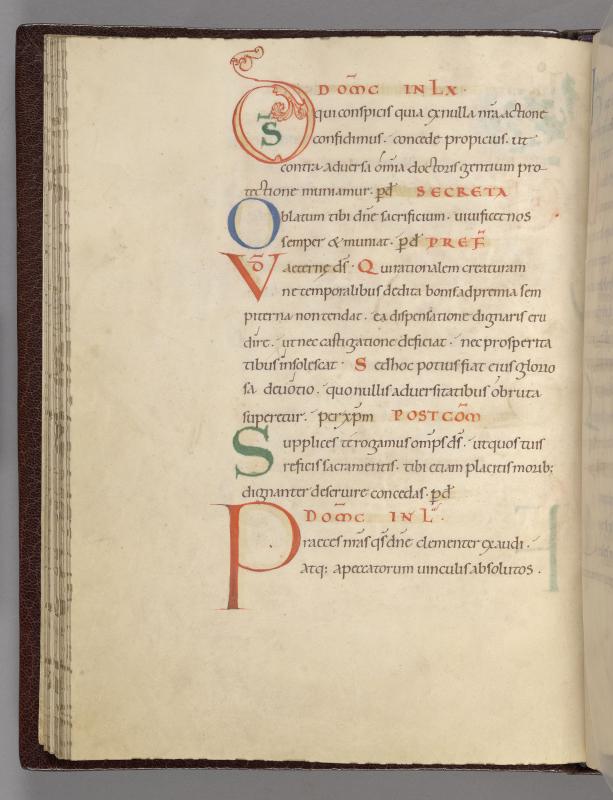 DOM̅C IN LX.
DS qui conspicis quia ex nulla nr̅a actione
confidimus. concede propicius. ut
contra adversa om̅ia doctoris gentium pro-
tectione muniamur. pd̅ SECRETA
Oblatum tibi dn̅e sacrificium. vivificet nos
semper & muniat. pd̅ PREF̅
VD̅ aeterne ds̅. Qui rationalem creaturam
ne temporalibus dedita bonis ad premia sem
piterna non tendat. ea dispensatione dignaris eru
dire. ut nec castigatione deficiat. nec prosperita
tibus insolescat. Sed hoc potius fiat eius glorio
sa devotio. quo nullis adversitatibus obruta
superetur. per xp̅m POST COM̅
Supplices te rogamus omps̅ ds̅. ut quos tuis
reficis sacramentis. tibi etiam placitis morib;
dignanter deservire concedas. pd̅
DOM̅C IN L.
Praeces nr̅as qs̅ dn̅e clementer exaudi.
atq: a peccatorum vinculis absolutos.